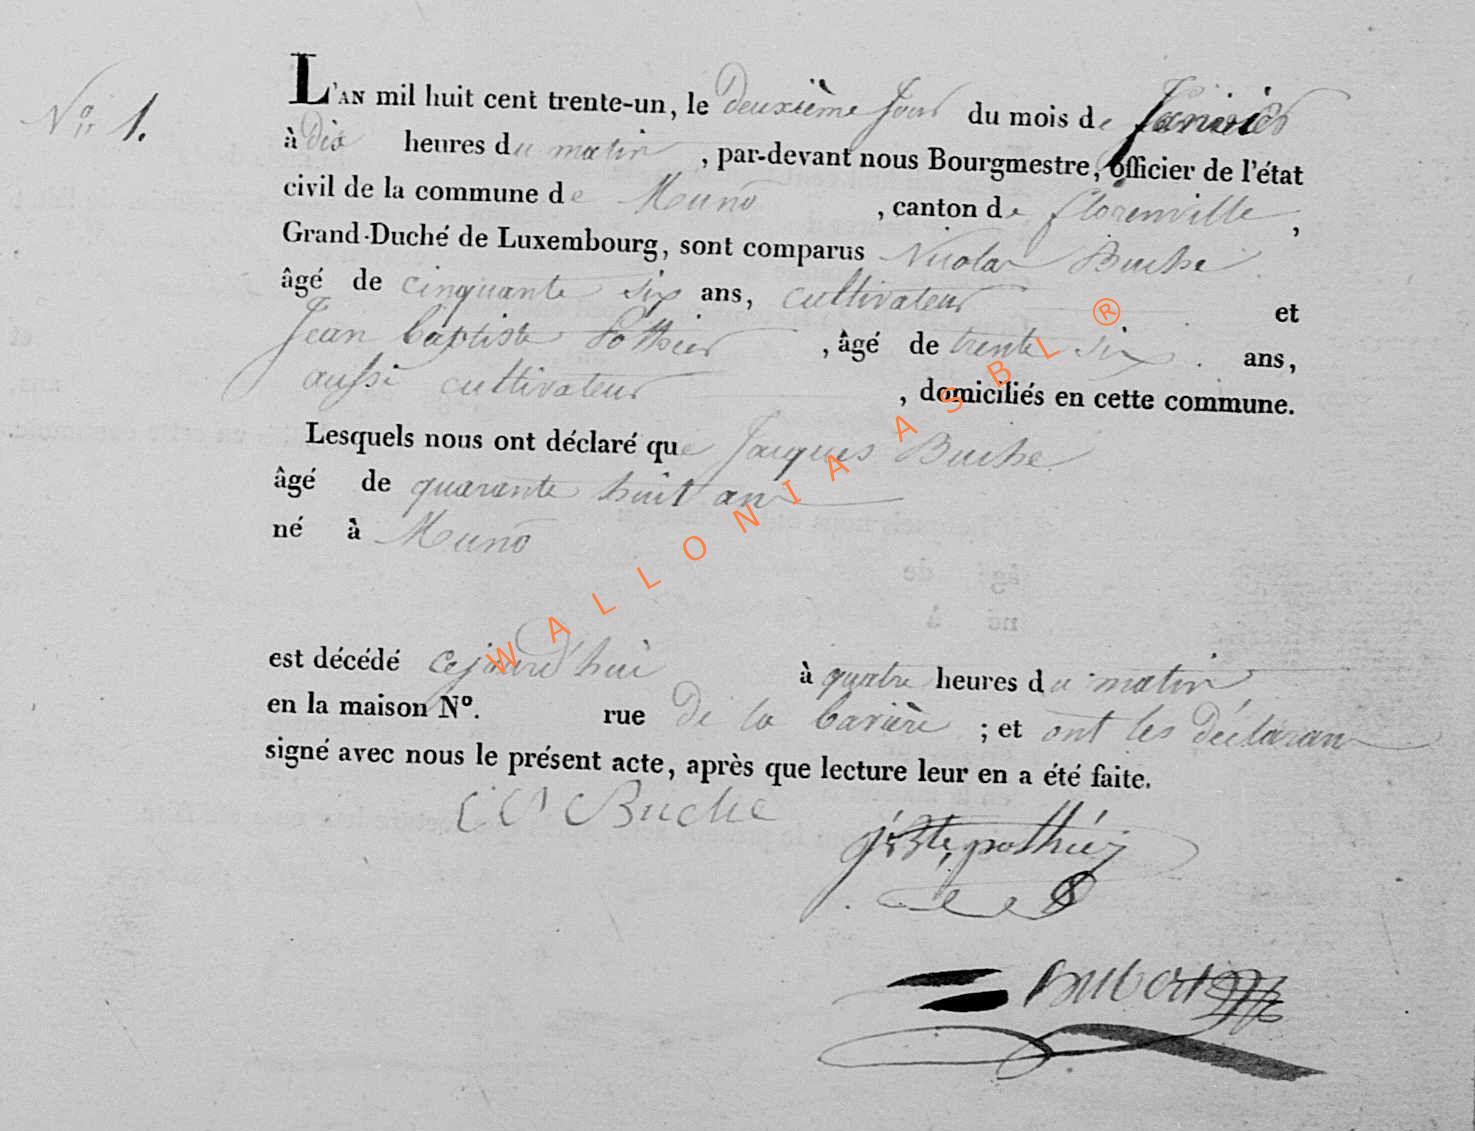 N° 1.
L'AN mil huit cent trente-un, le deuxième jour du mois de Janvier
à dix heures du matin, par-devant nous Bourgmestre, officier de l'état
civil de la commune de Muno, canton de florenville,
Grand-Duché de Luxembourg, sont comparus Nicolas Buche
âgé de cinquante six ans, cultivateur et
Jean baptiste Pothier, âgé de trente six ans,
aussi cultivateur, domiciliés en cette commune.
Lesquels nous ont déclaré que Jacques Buche
âgé de quarante huit ans
né à Muno
est décédé cejourd'hui à quatre heures du matin
en la maison N°. rue De la barière ; et ont les déclarans
signé avec nous le présent acte, après que lecture leur en a été faite.
Buche
jBte, pothier
hubert
WALLONIA ASBL ®